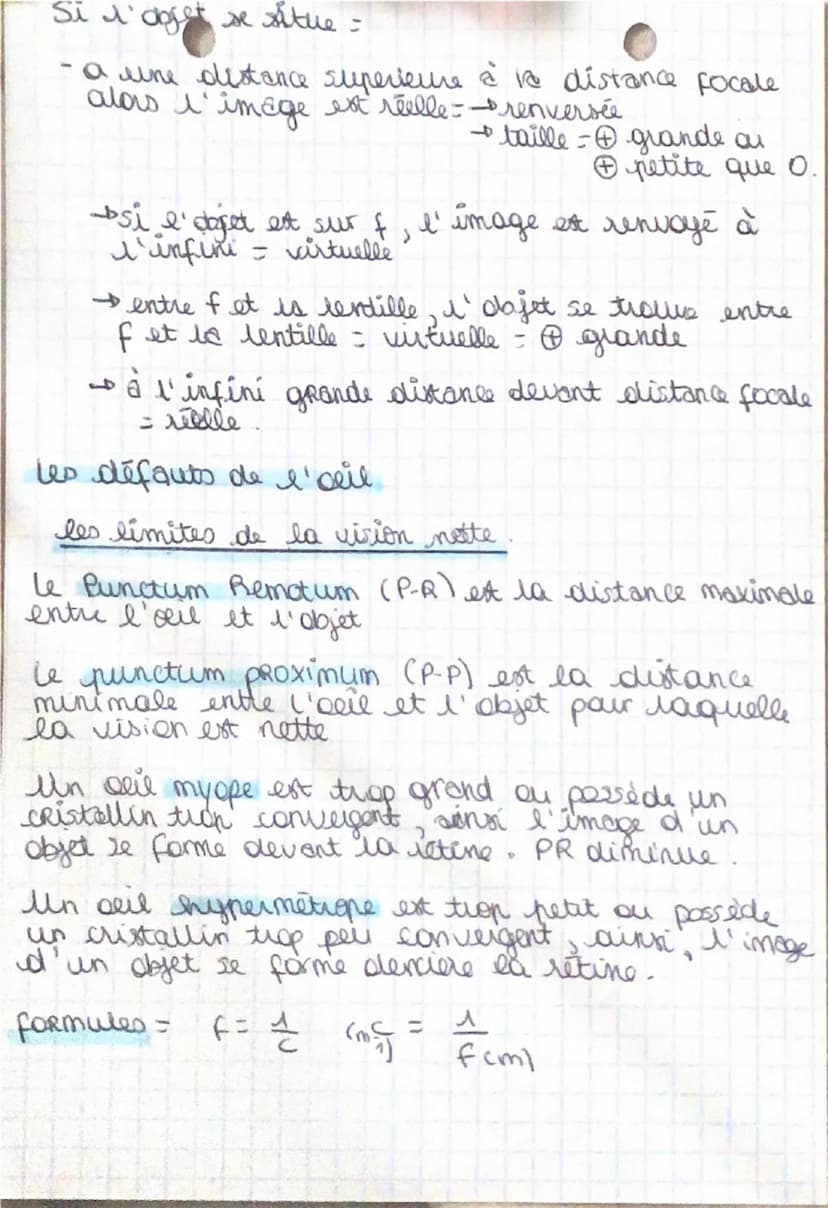 Si l'objet se situe =
- a une distance superieure à la distance focale
alors l'image est réelle = → renversée
→ taille = ⊕ grande ou
⊕ petite que O.
→ si l'objet est sur f, l'image est renvoyé à
l'infini = virtuelle
→ entre f et la lentille, l'objet se trouve entre
f et la lentille = virtuelle = ⊕ grande
→ à l'infini grande distance devant distance focale
= réelle.
Les défauts de l'œil
les limites de la vision nette.
Le Punctum Remotum (P-R) est la distance maximale
entre l'œil et l'objet
Le punctum proximum (P-P) est la distance
minimale entre l'œil et l'objet pour laquelle
la vision est nette
Un œil myope est trop grand ou possède un
cristallin trop convergent, ainsi l'image d'un
objet se forme devant la rétine. PR diminue.
Un œil hypermétrope est trop petit ou possède
un cristallin trop peu convergent, ainsi, l'image
d'un objet se forme derriere la rétine.
formules = f = 1/C C (m-1) = 1/f(m)